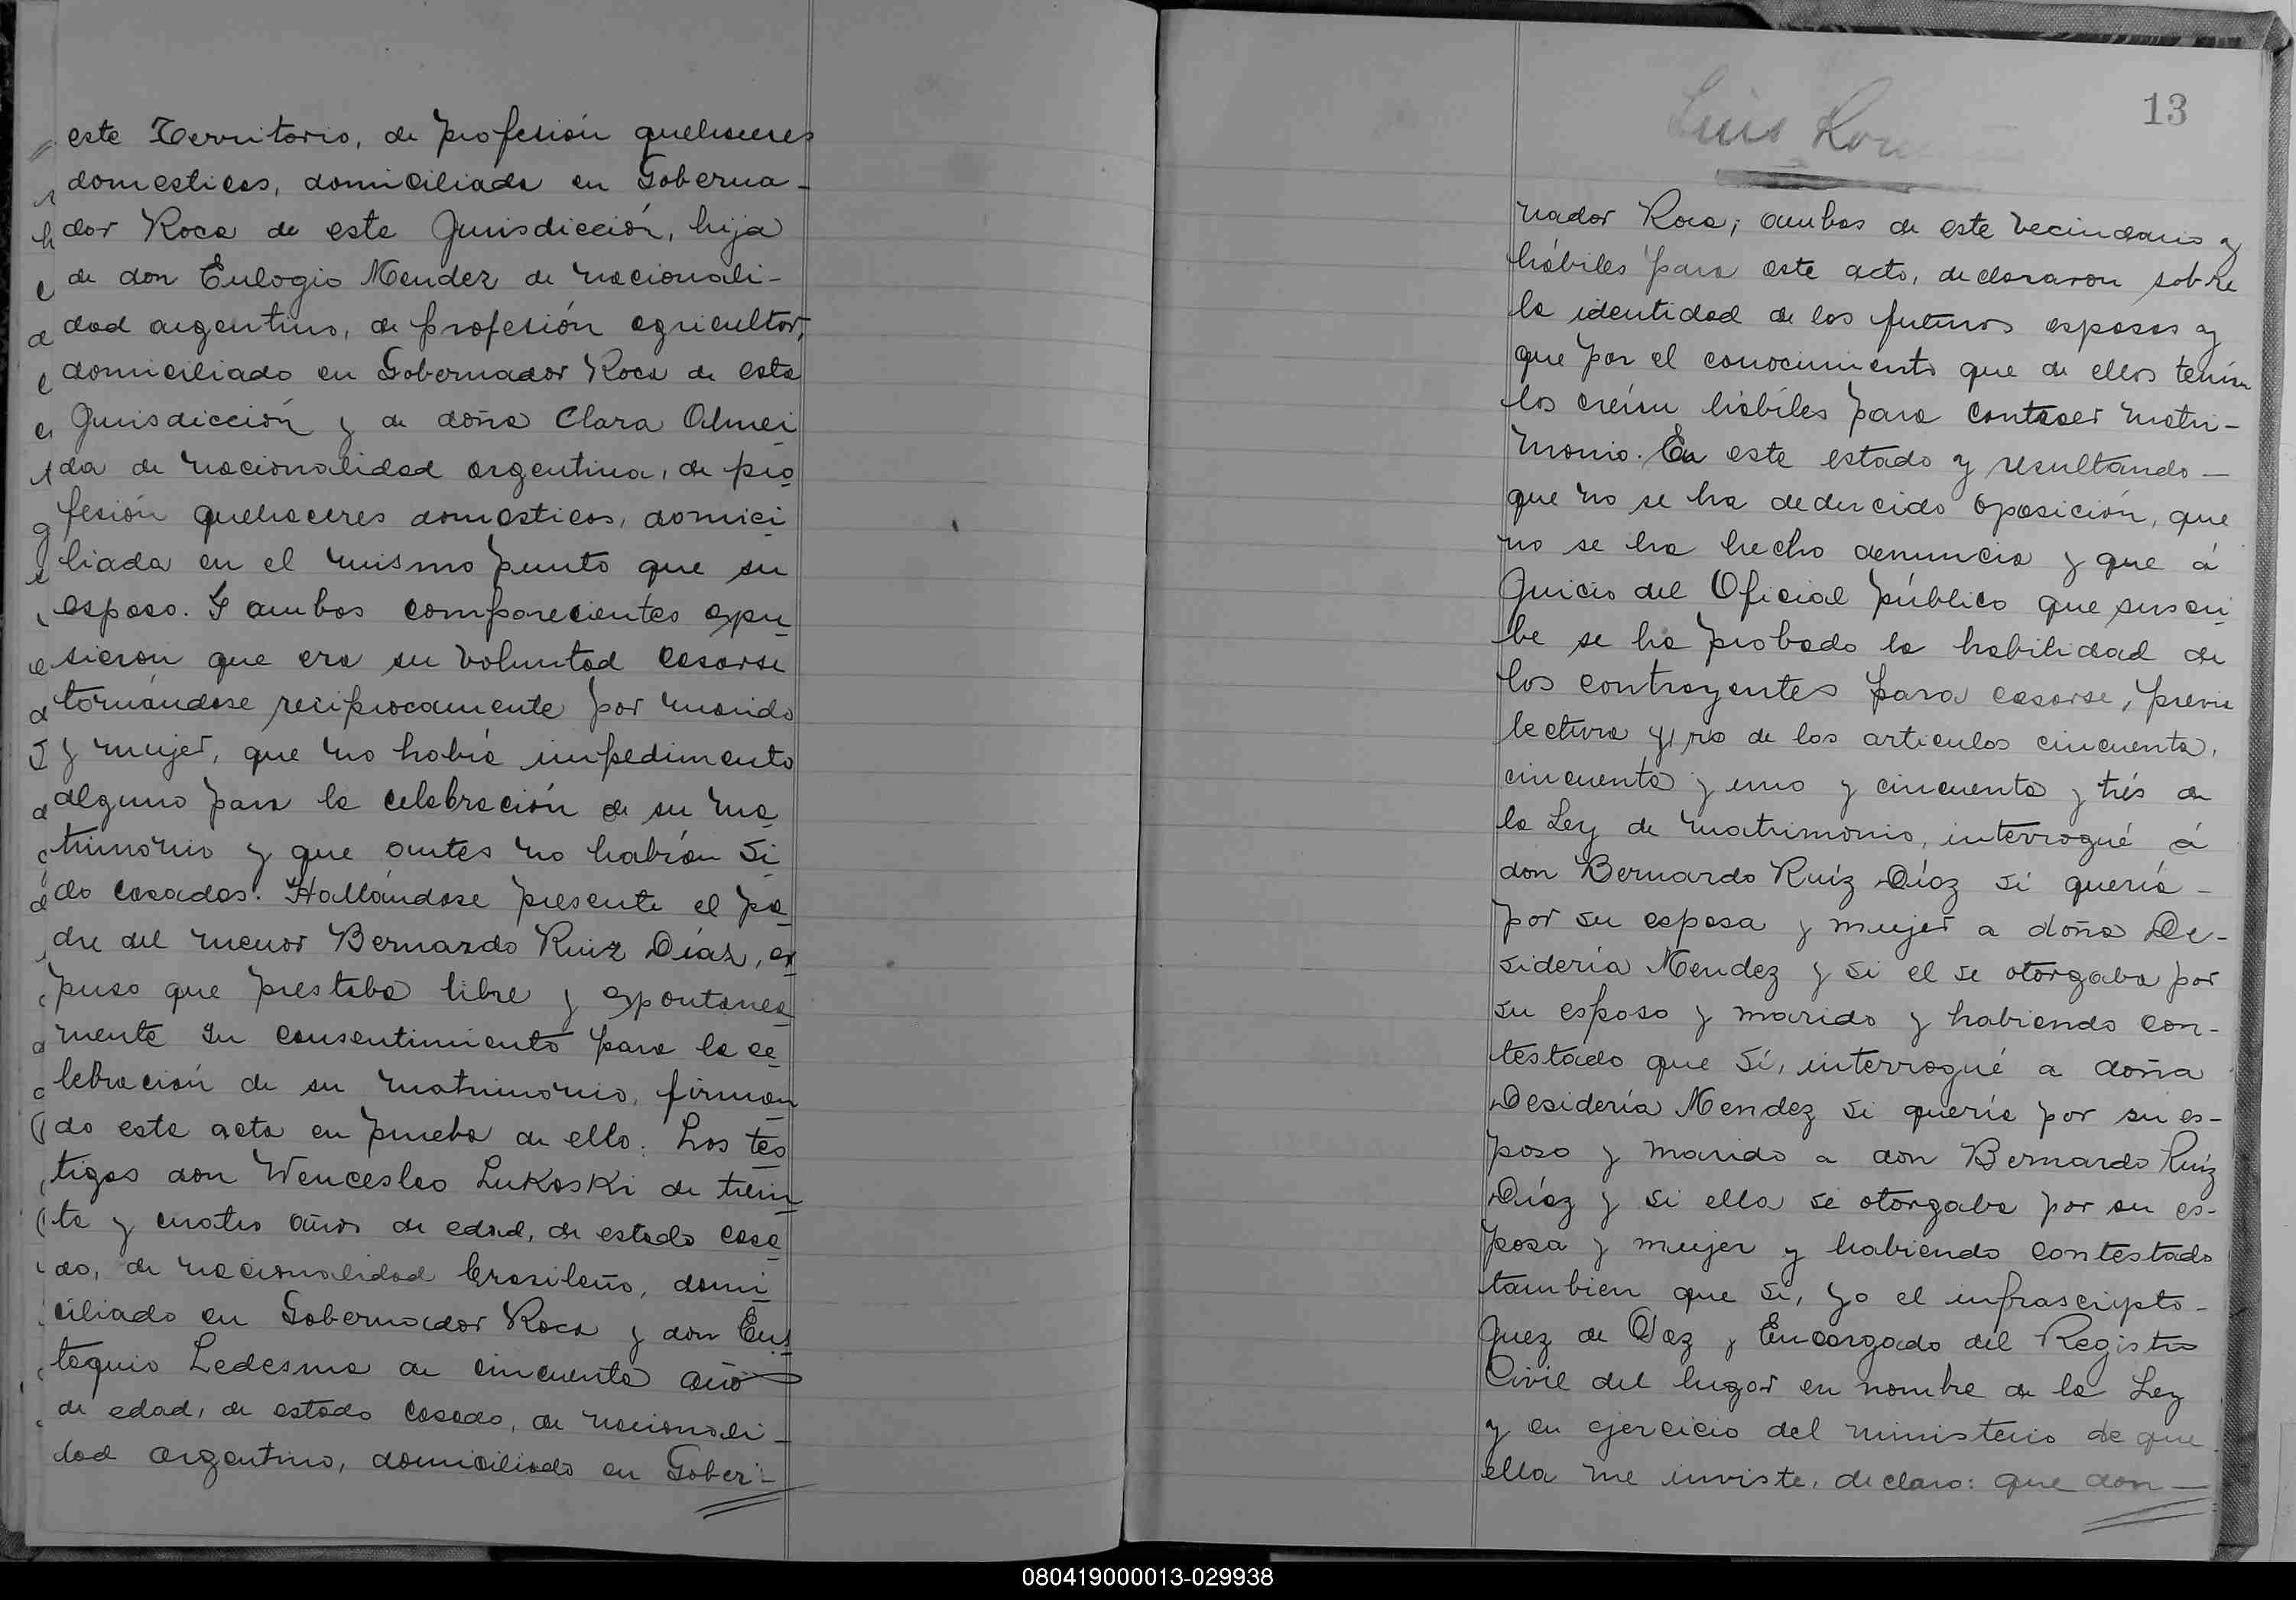 este Territorio, de profesión quehaceres
domesticos, domiciliada en Goberna-
dor Roca de este Jurisdicción, hija
de don Eulogio Mendez de nacionali-
dad argentino, de profesión agricultor,
domiciliado en Gobernador Roca de esta
Jurisdicción y de doña Clara Almei
da de nacionalidad argentina, de pro
fesión quehaceres domesticos, domici
liada en el mismo punto que su
esposo. Y ambos comparecientes expu
sieron que era su voluntad casarse
tomándose reciprocamente por marido
y mujer, que no había impedimento
alguno para la celebración de su ma
trimonio y que antes no habían si
do casados. Hallándose presente el pa
dre del menor Bernardo Ruiz Díaz, ex
puso que prestaba libre y espontanea
mente su consentimiento para la ce
lebración de su matrimonio, firman
do esta acta en prueba de ello. Los tes
tigos don Wenceslao Lukoski de trein
ta y cuatro años de edad, de estado casa
do, de nacionalidad brasileño, domi
ciliado en Gobernador Roca y don Eus
taquio Ledesma de cincuenta año
de edad, de estado casado, de nacionali-
dad argentino, domiciliado en Gober-
13
Luis
nador Roca; ambos de este vecindario y
hábiles para este acto, declararon sobre
la identidad de los futuros esposos y
que por el conocimiento que de ellos tenían
los creían hábiles para contraer matri-
monio. En este estado y resultando
que no se ha deducido oposición, que
no se ha hecho denuncia y que á
Juicio del Oficial público que suscri
be se ha probado la habilidad de
los contrayentes para casarse, previa
lectura de los articulos cincuenta,
cincuenta y uno y cincuenta y trés de
la Ley de matrimonio, interrogué á
don Bernardo Ruíz Díaz si quería
por su esposa y mujer a doña De-
sidería Mendez y si el se otorgaba por
su esposo y marido y habiendo con-
testado que sí, interrogué a doña
Desidería Mendez si quería por su es-
poso y marido a don Bernardo Ruíz
Díaz y si ella se otorgaba por su es-
posa y mujer y habiendo contestado
tambien que si, yo el infrascripto
Juez de Paz y Encargado del Registro
Civil del lugar en nombre de la Ley
y en ejercicio del ministerio de que
ella me inviste, declaro: que don
080419000013-029938